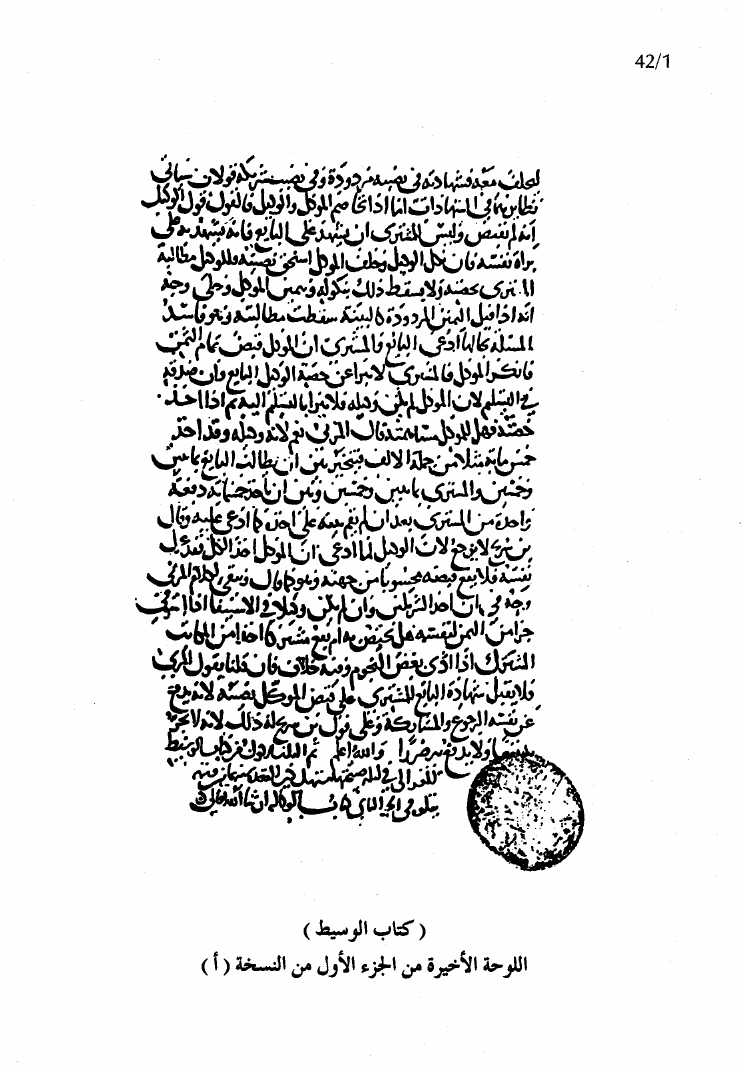 42/1
ليحلف معه فشهادته في نصيبه مردودة وفي نصيب شريكه قولان
نظايرها في الشهادات اما اذا تخاصم الموكل والوكيل فالقول قول الوكيل
انه لم يقبض وليس للمشتري ان يشهد على البايع فانه يشهد به على
براة نفسه فان نكل الوكيل وحلف الموكل استحق نصيبه وللوكيل مطالبة
المشتري بحصته ولا يسقط ذلك بنكوله ويمين الموكل وحكي وجه
انه اذا قيل اليمين المردودة كالبينة سقطت مطالبته وهو فاسد
المسئلة بحالها ادعى البايع والمشتري ان الموكل قبض تمام الثمن
فانكر الموكل فالمشتري لا يبرا عن حصة الوكيل البايع وان صدقه
في التسليم لان الموكل لم يكن وكيله فلا يبرا بالتسليم اليه ثم اذا اخذ
حصته فهل للموكل مساهمته قال المزني نعم لانه وكيله وقد اخذ
خمس ماية مثلا من جملة الالف فيتخير بين ان يطالب البايع بمايتين
وخمسين والمشتري بمايتين وخمسين وبين ان ياخذ خمسماية دفعة
واحدة من المشتري بعد ان لم تقم بينة على اخذه كما ادعى عليه وقال
بن سريج لا يرجع لان الوكيل لما ادعى ان الموكل اخذ الكل فقد عزل
نفسه فلا يقع قبضه محسوبا من جهته وهو كما قال ويبقى لكلام المزني
وجه في ان احد الشريكين وان لم يكن وكيلا في الاستيفا اذا استوفى
جزا من الثمن لنفسه هل يختص به ام يقع مشتركا اخذا من المكاتب
المشترك اذا ادى بعض النجوم وفيه خلاف فان قلنا بقول المزني
فلا يقبل شهادة البايع للمشتري على قبض الموكل نصيبه لانه يدفع
عن نفسه الرجوع والمشاركة وعلى قول بن سريج له ذلك لانه لا يجر
ولا يدفع ضررا والله اعلم تم المجلد الاول من كتاب الوسيط
للغزالي
يتلوه في الجزء الثاني كتاب الوكالة ان شا الله تعالى
( كتاب الوسيط )
اللوحة الأخيرة من الجزء الأول من النسخة ( أ )